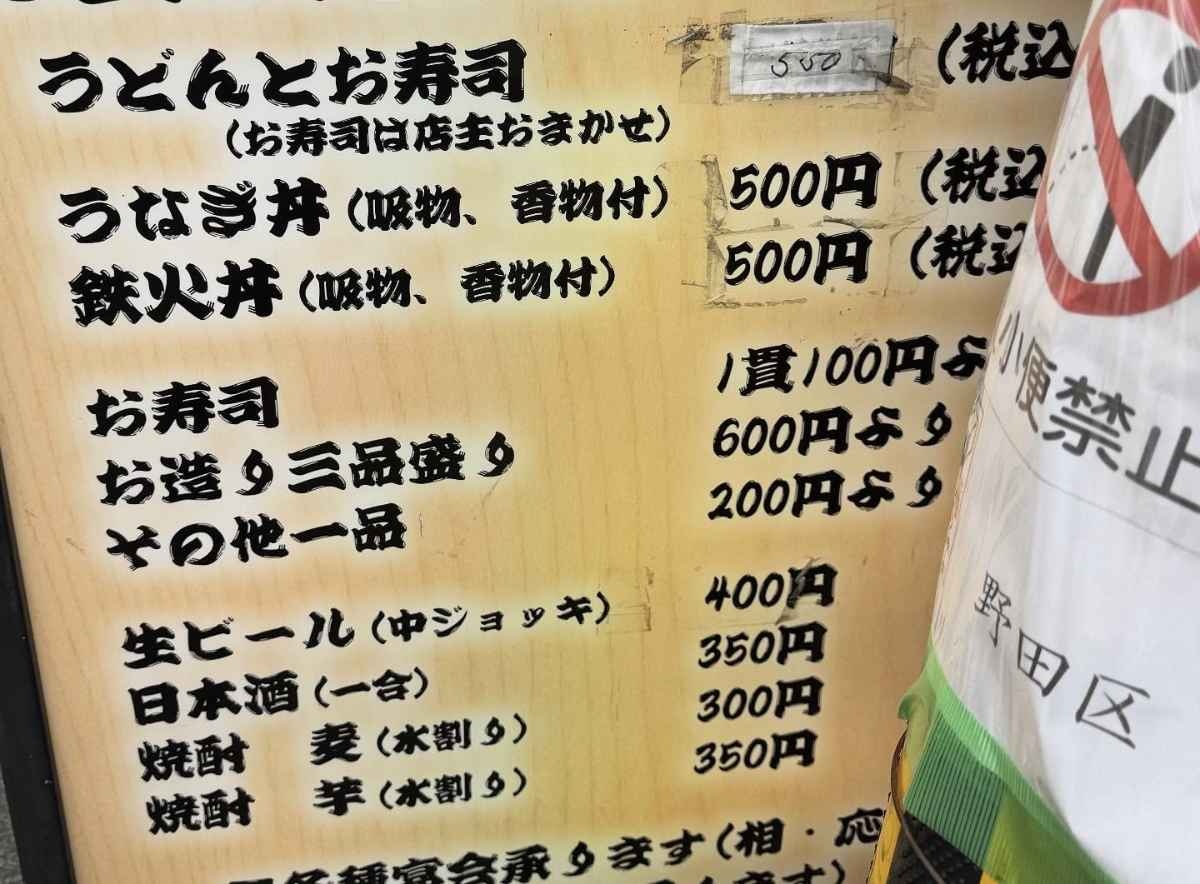 うどんとお寿司 550 (税込
(お寿司は店主おまかせ)
うなぎ丼(吸物、香物付) 500円 (税込
鉄火丼(吸物、香物付) 500円 (税込
お寿司 1貫100円よ
お造り三品盛り 600円より
その他一品 200円より
生ビール(中ジョッキ) 400円
日本酒(一合) 350円
焼酎 麦(水割り) 300円
焼酎 芋(水割り) 350円
各種宴会承ります(相・応
小便禁止
野田区